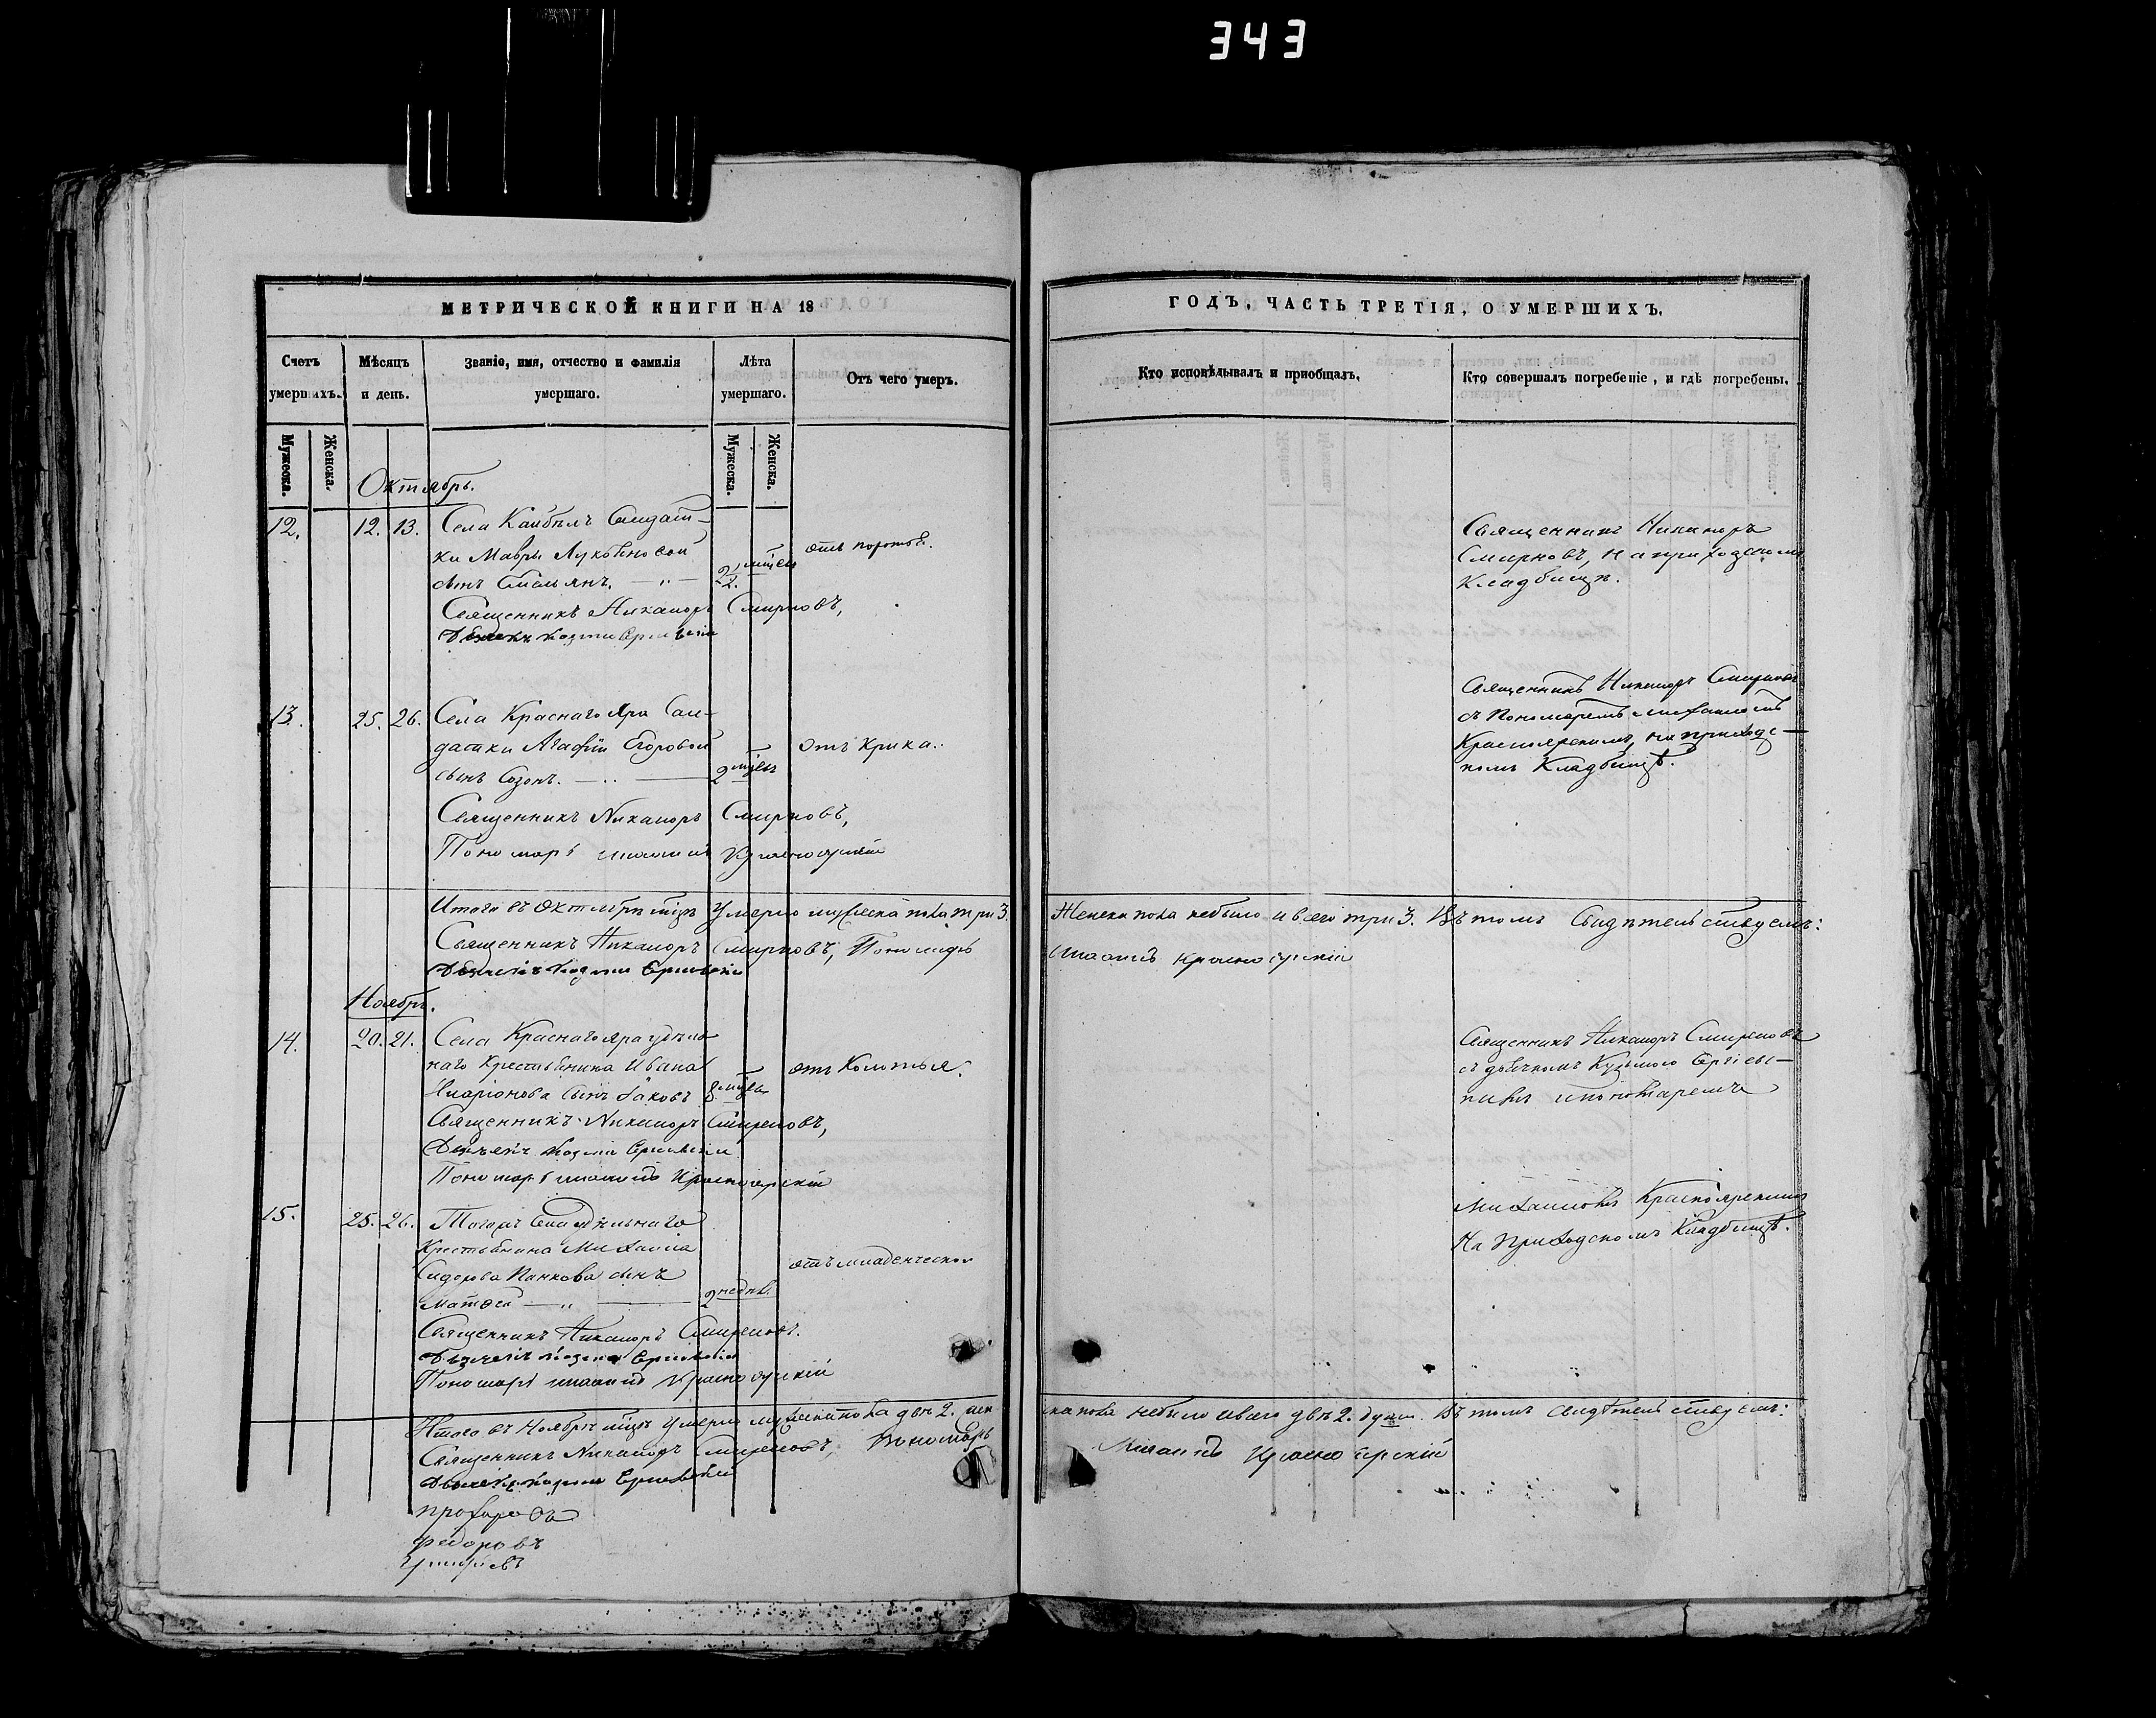 343
МЕТРИЧЕСКОЙ КНИГИ НА 18
ГОДЪ, ЧАСТЬ ТРЕТІЯ, О УМЕРШИХЪ.
Счетъ умершихъ.
Мѣсяцъ и день.
Званіе, имя, отчество и фамилія умершаго.
Лѣта умершаго.
Отъ чего умеръ.
Кто исповѣдывалъ и приобщалъ.
Кто совершалъ погребеніе, и гдѣ погребены.
Мужеска.
Женска.
Мужеска.
Женска.
Октябрь.
12. 12. 13. Села Кайбелъ Солдат-
ки Мавры Лукьяновой
сынъ Емельянъ.
Священникъ Никаноръ Смирновъ,
отъ поноса.
Священникъ Никаноръ
Смирновъ, на приходскомъ
Кладбищѣ.
13. 25. 26. Села Краснаго Яра Сол-
датки Агафіи Егоровой
сынъ Созонъ. 2 мѣсц
отъ крика.
Священникъ Никаноръ Смирновъ,
Пономарь Михаилъ Красноярскій
Священникъ Никаноръ Смирновъ
съ Пономаремъ Михаиломъ
Красноярскимъ, на приходс-
комъ Кладбищѣ.
Итого въ Октябрѣ мцѣ умерло мужеска пола три 3.
Женска пола небыло и всего три 3. Въ томъ свидѣтельствуемъ:
Священникъ Никаноръ Смирновъ, Пономарь
Михаилъ Красноярскій
Ноябрь.
14. 20. 21. Села Краснаго яра удѣль-
наго Крестьянина Ивана
Иларіонова Сынъ Іаковъ 8 мцъ
отъ Колотья.
Священникъ Никаноръ Смирновъ,
Пономарь Михаилъ Красноярскій
Священникъ Никаноръ Смирновъ
съ дьячкомъ Кузьмою
и пономаремъ
15. 25. 26. Тогожъ Села удѣльнаго
Крестьянина Михаила
Сидорова Панкова сынъ
Матѳей 2 недѣль
отъ младенческой
Священникъ Никаноръ Смирновъ.
Пономарь Михаилъ Красноярскій
Михаиломъ Красноярскимъ
На приходскомъ Кладбищѣ.
Итого въ Ноябрѣ мцѣ умерло мужеска пола двѣ 2. жен
ска пола небыло и всего двѣ 2. души. Въ томъ свидѣтельствуемъ:
Священникъ Никаноръ Смирновъ, Пономарь
Михаилъ Красноярскій
Федоровъ